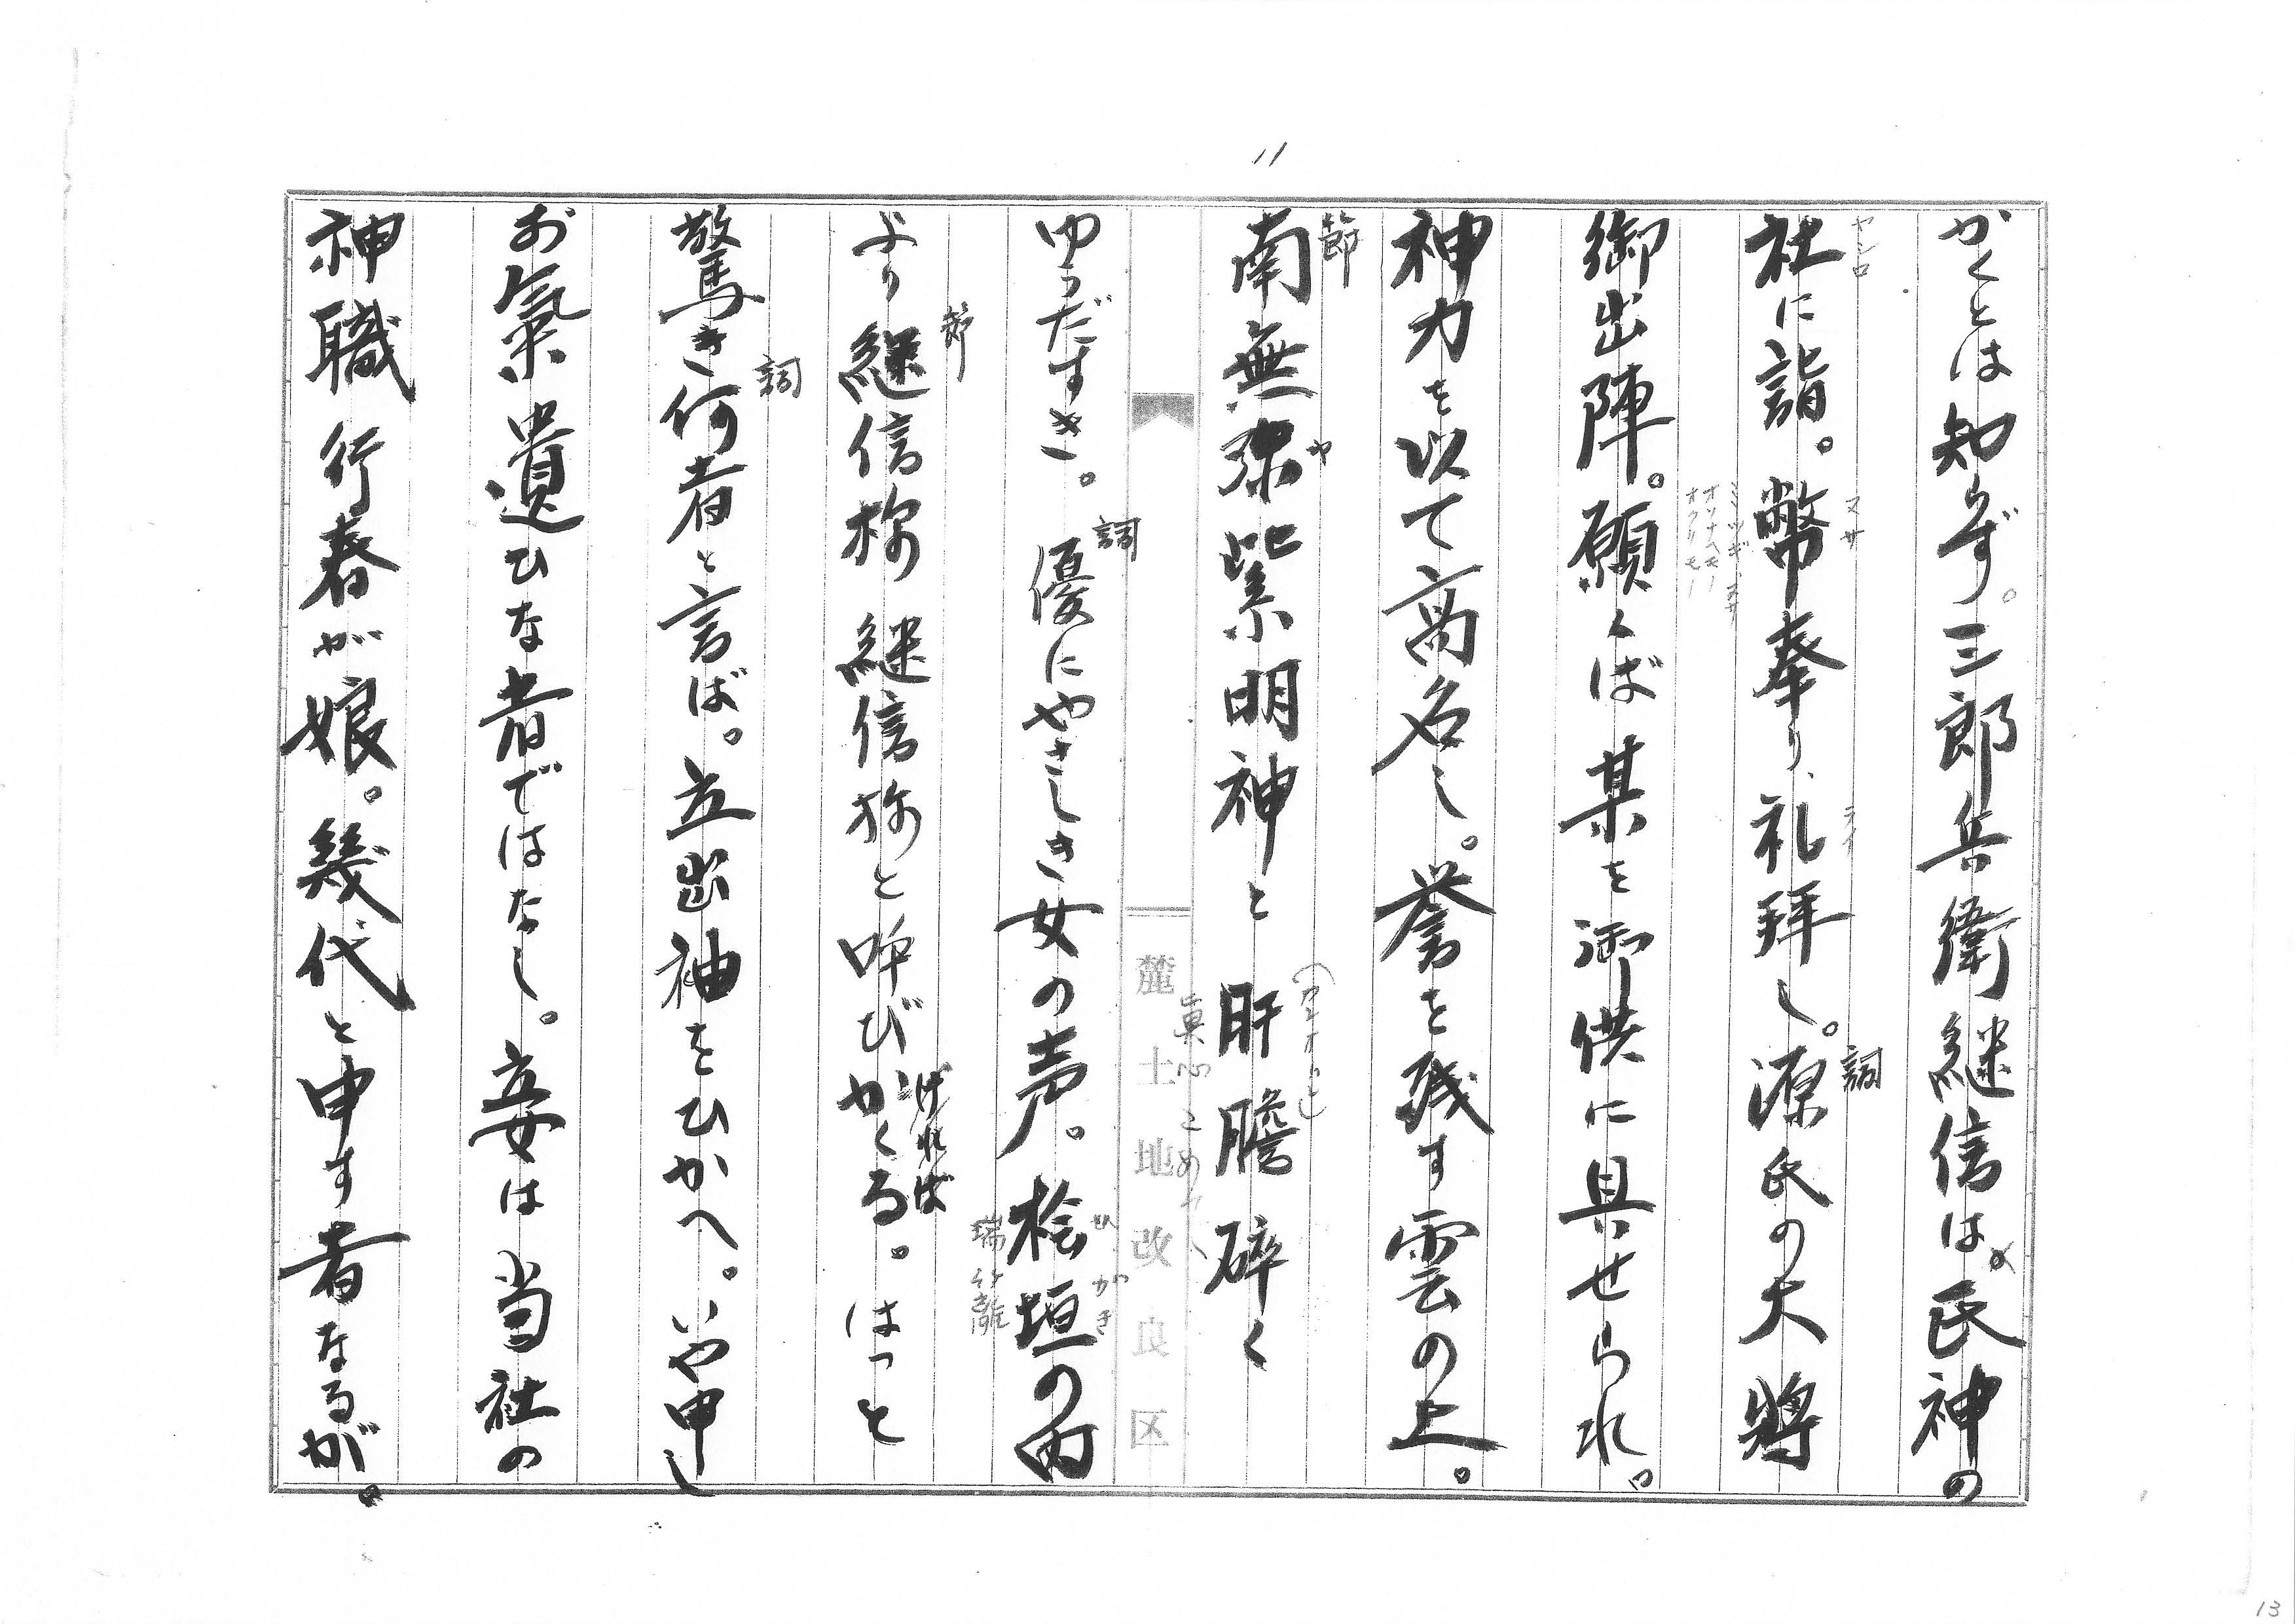 11
かくとは知らず。三郎兵衛継信は。氏神の
ヤシロ
社に詣。幣奉り、礼拝し。源氏の大將
ヌサ
ライ
詞
御出陣。願くば某を御供に具せられ。
神力を以て高名し。誉を残す雲の上。
節
南無弥紫明神と肝膽碎く
ヤ
真心こめて
ゆうだすき。優にやさしき女の声。桧垣の内
詞
ひがき
より継信様継信様と呼びかくる。はっと
節
ければ
驚き何者と言ば。立出袖をひかへ。いや申し
詞
お氣遣ひな者ではなし。妾は当社の
神職行春が娘。幾代と申す者なるが。
麓土地改良区
13